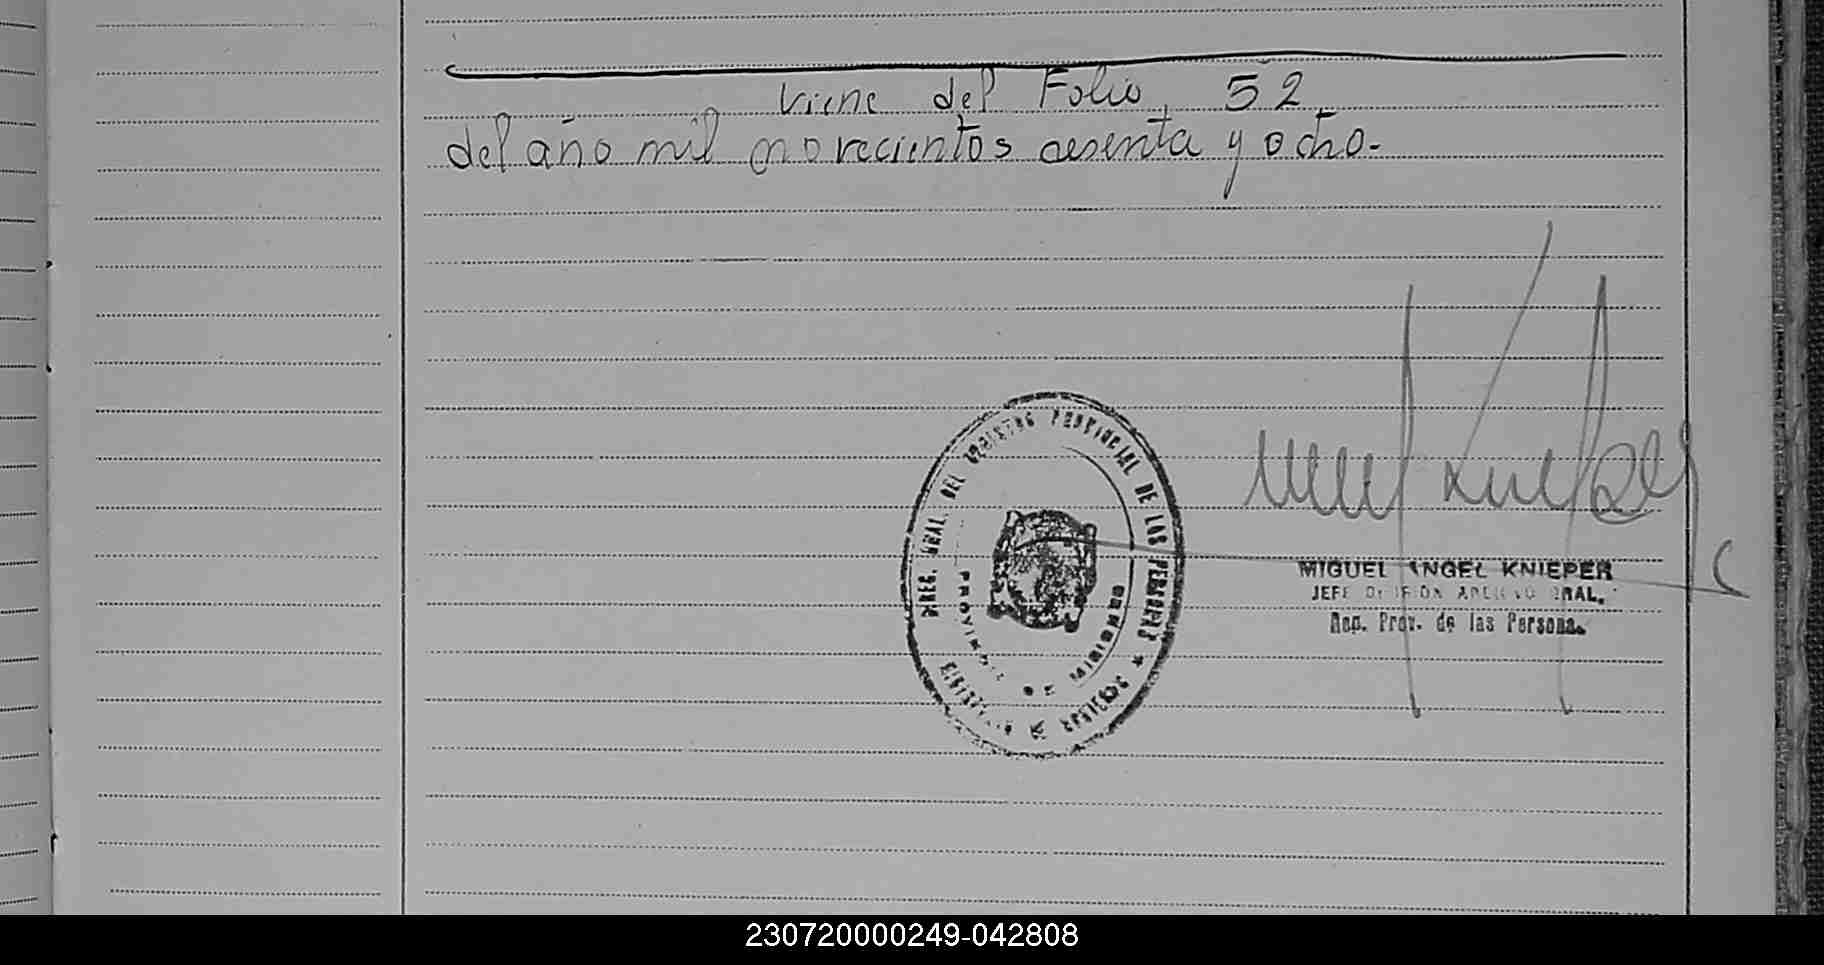 Viene del Folio, 52,
del año mil novecientos sesenta y ocho.-
DIREC. GRAL. DEL REGISTRO PROVINCIAL DE LOS PERSONAS *
PROVINCIA DE MISIONES
MINISTERIO DE GOBIERNO
MIGUEL ANGEL KNIEPER
JEFE DIVISION ARCHIVO GRAL.
Reg. Prov. de las Personas
230720000249-042808